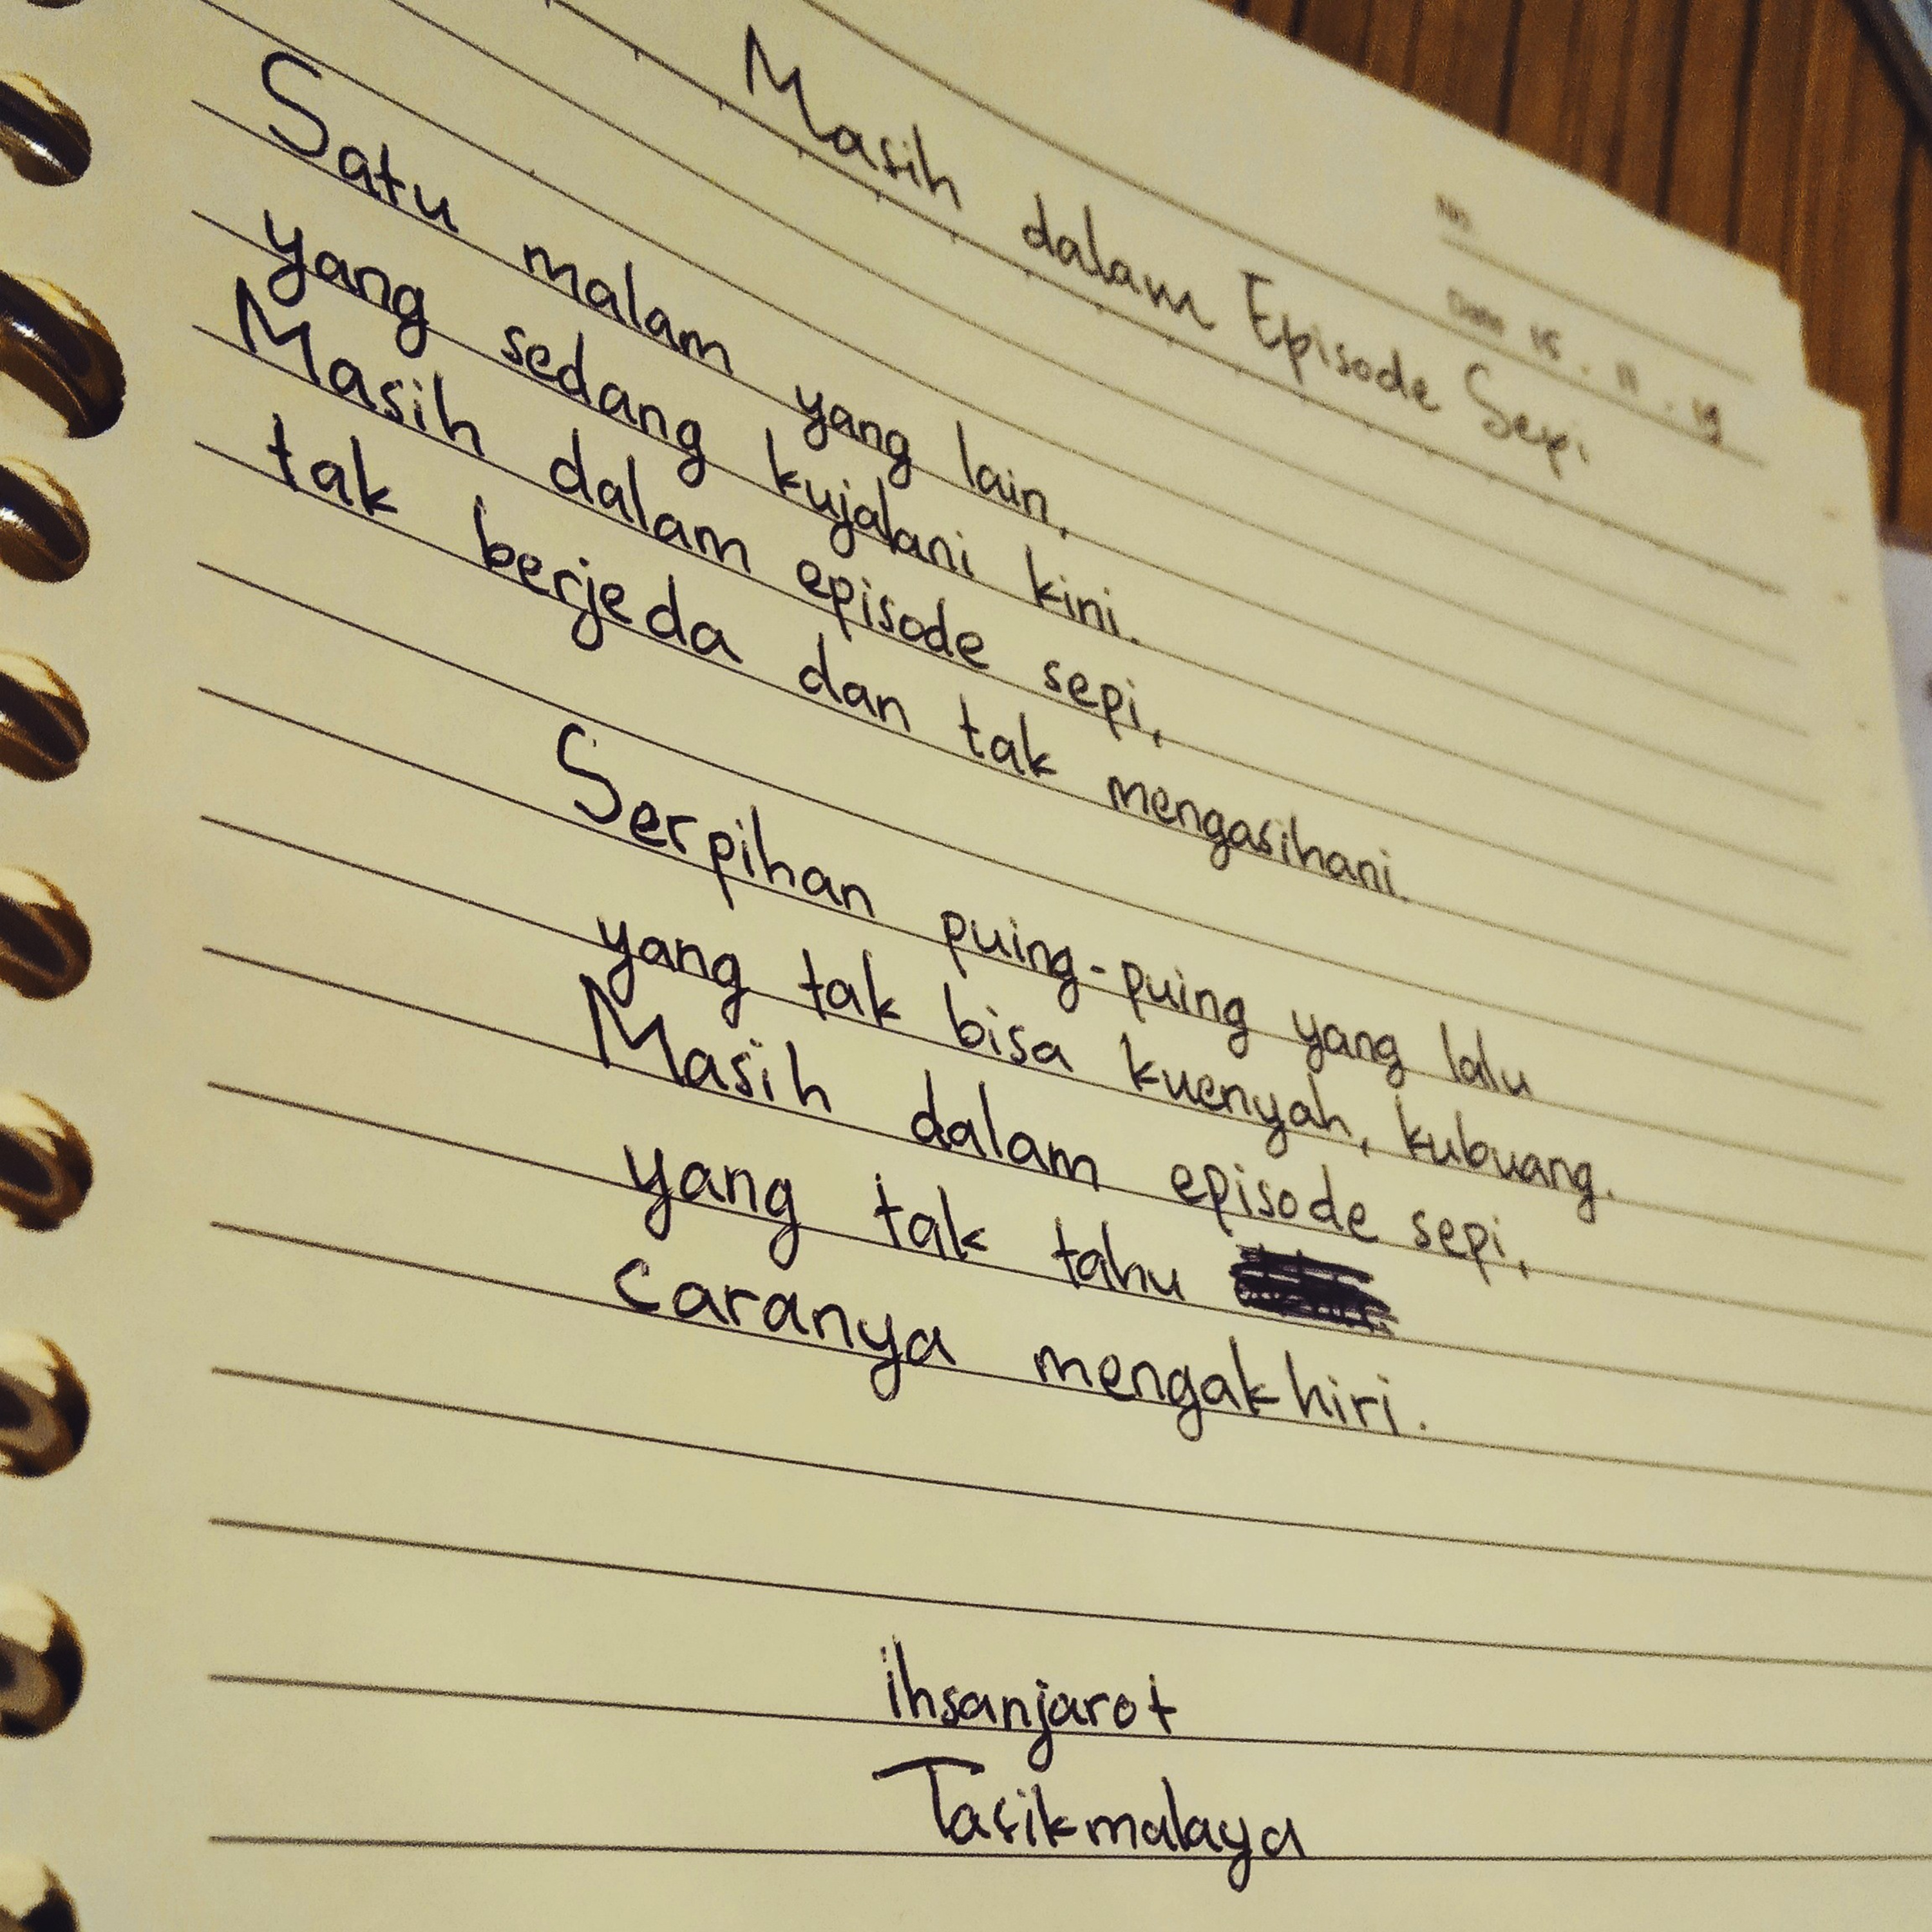 No.
Date 15 . 11 . 19
Masih dalam Episode Sepi
Satu malam yang lain,
yang sedang kujalani kini.
Masih dalam episode sepi,
tak berjeda dan tak mengasihani.
Serpihan puing-puing yang lalu
yang tak bisa kuenyah, kubuang.
Masih dalam episode sepi,
yang tak tahu
caranya mengakhiri.
ihsanjarot
Tasikmalaya